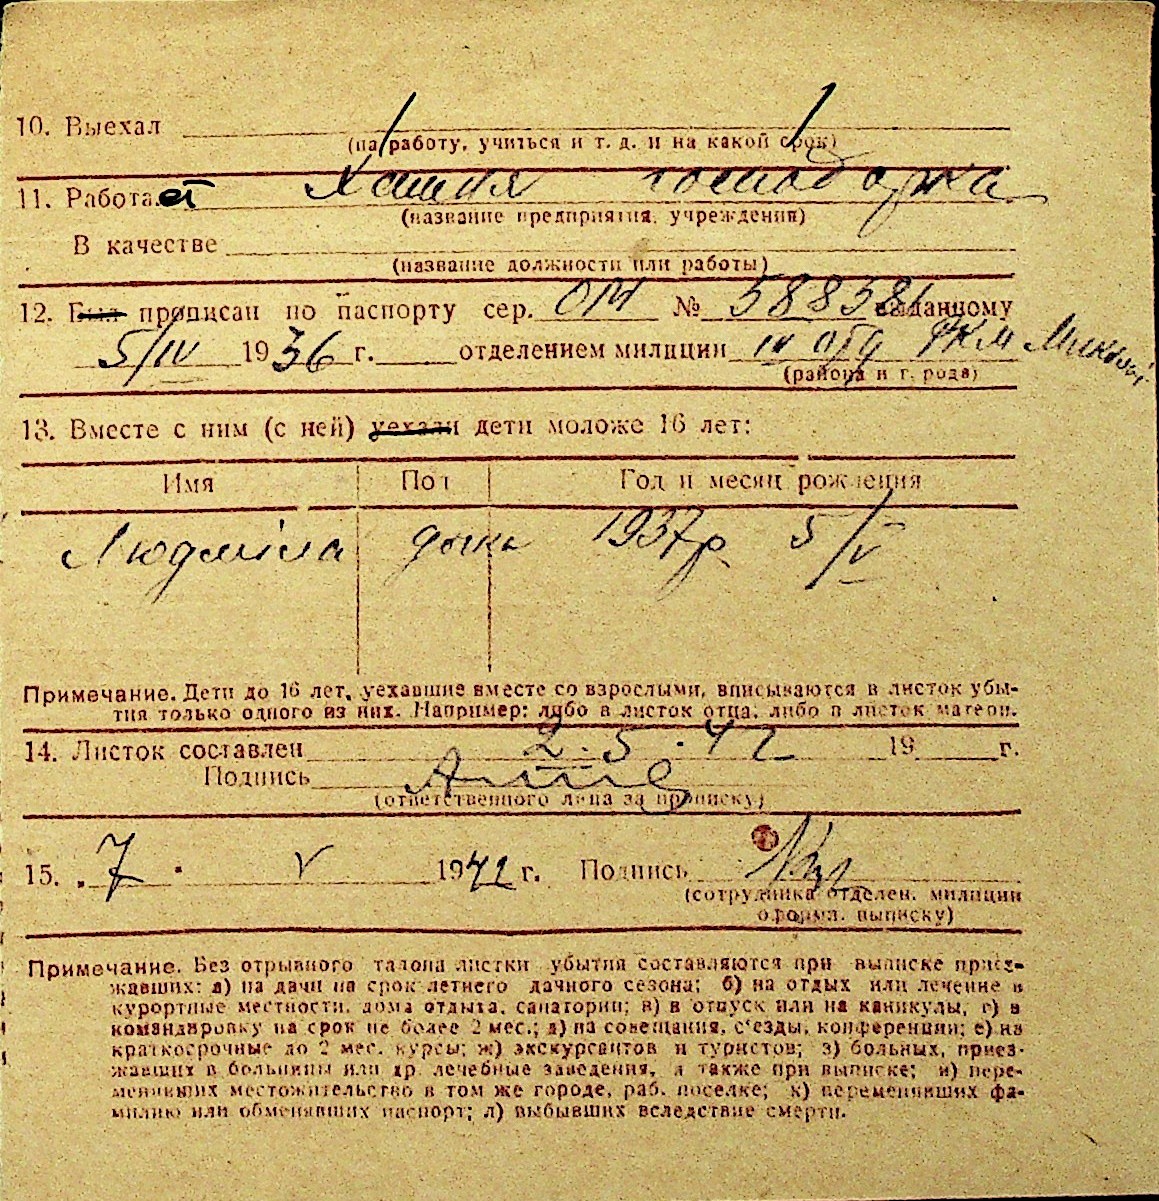 10. Выехал
(на работу, учиться и т. д. и на какой срок)
11. Работает Хатня господарка
(название предприятия, учреждения)
В качестве
(название должности или работы)
12. Был прописан по паспорту сер. ОМ № 588581 выданному
5/IV 1936 г. отделением милиции III отд РКМ
(района и города)
13. Вместе с ним (с ней) уехали дети моложе 16 лет:
Имя Пол Год и месяц рождения
Людміла дочь 1937р. 5/V
Примечание. Дети до 16 лет, уехавшие вместе со взрослыми, вписываются в листок убы-
тия только одного из них. Например: либо в листок отца, либо в листок матери.
14. Листок составлен 2.5.42 19 г.
Подпись
(ответственного лица за прописку)
15. 7 V 1942 г. Подпись
(сотрудника отделен. милиции
оформл. выписку)
Примечание. Без отрывного талона листки убытия составляются при выписке приез-
жавших: а) на дачи на срок летнего дачного сезона; б) на отдых или лечение в
курортные местности, дома отдыха, санатории; в) в отпуск или на каникулы, г) в
командировку на срок не более 2 мес.; д) на совещания, с'езды, конференции; е) на
краткосрочные до 2 мес. курсы; ж) экскурсантов и туристов; з) больных, приез-
жавших в больницы или др. лечебные заведения, а также при выписке; и) пере-
менивших местожительство в том же городе, раб. поселке; к) переменивших фа-
милию или обменявших паспорт; л) выбывших вследствие смерти.